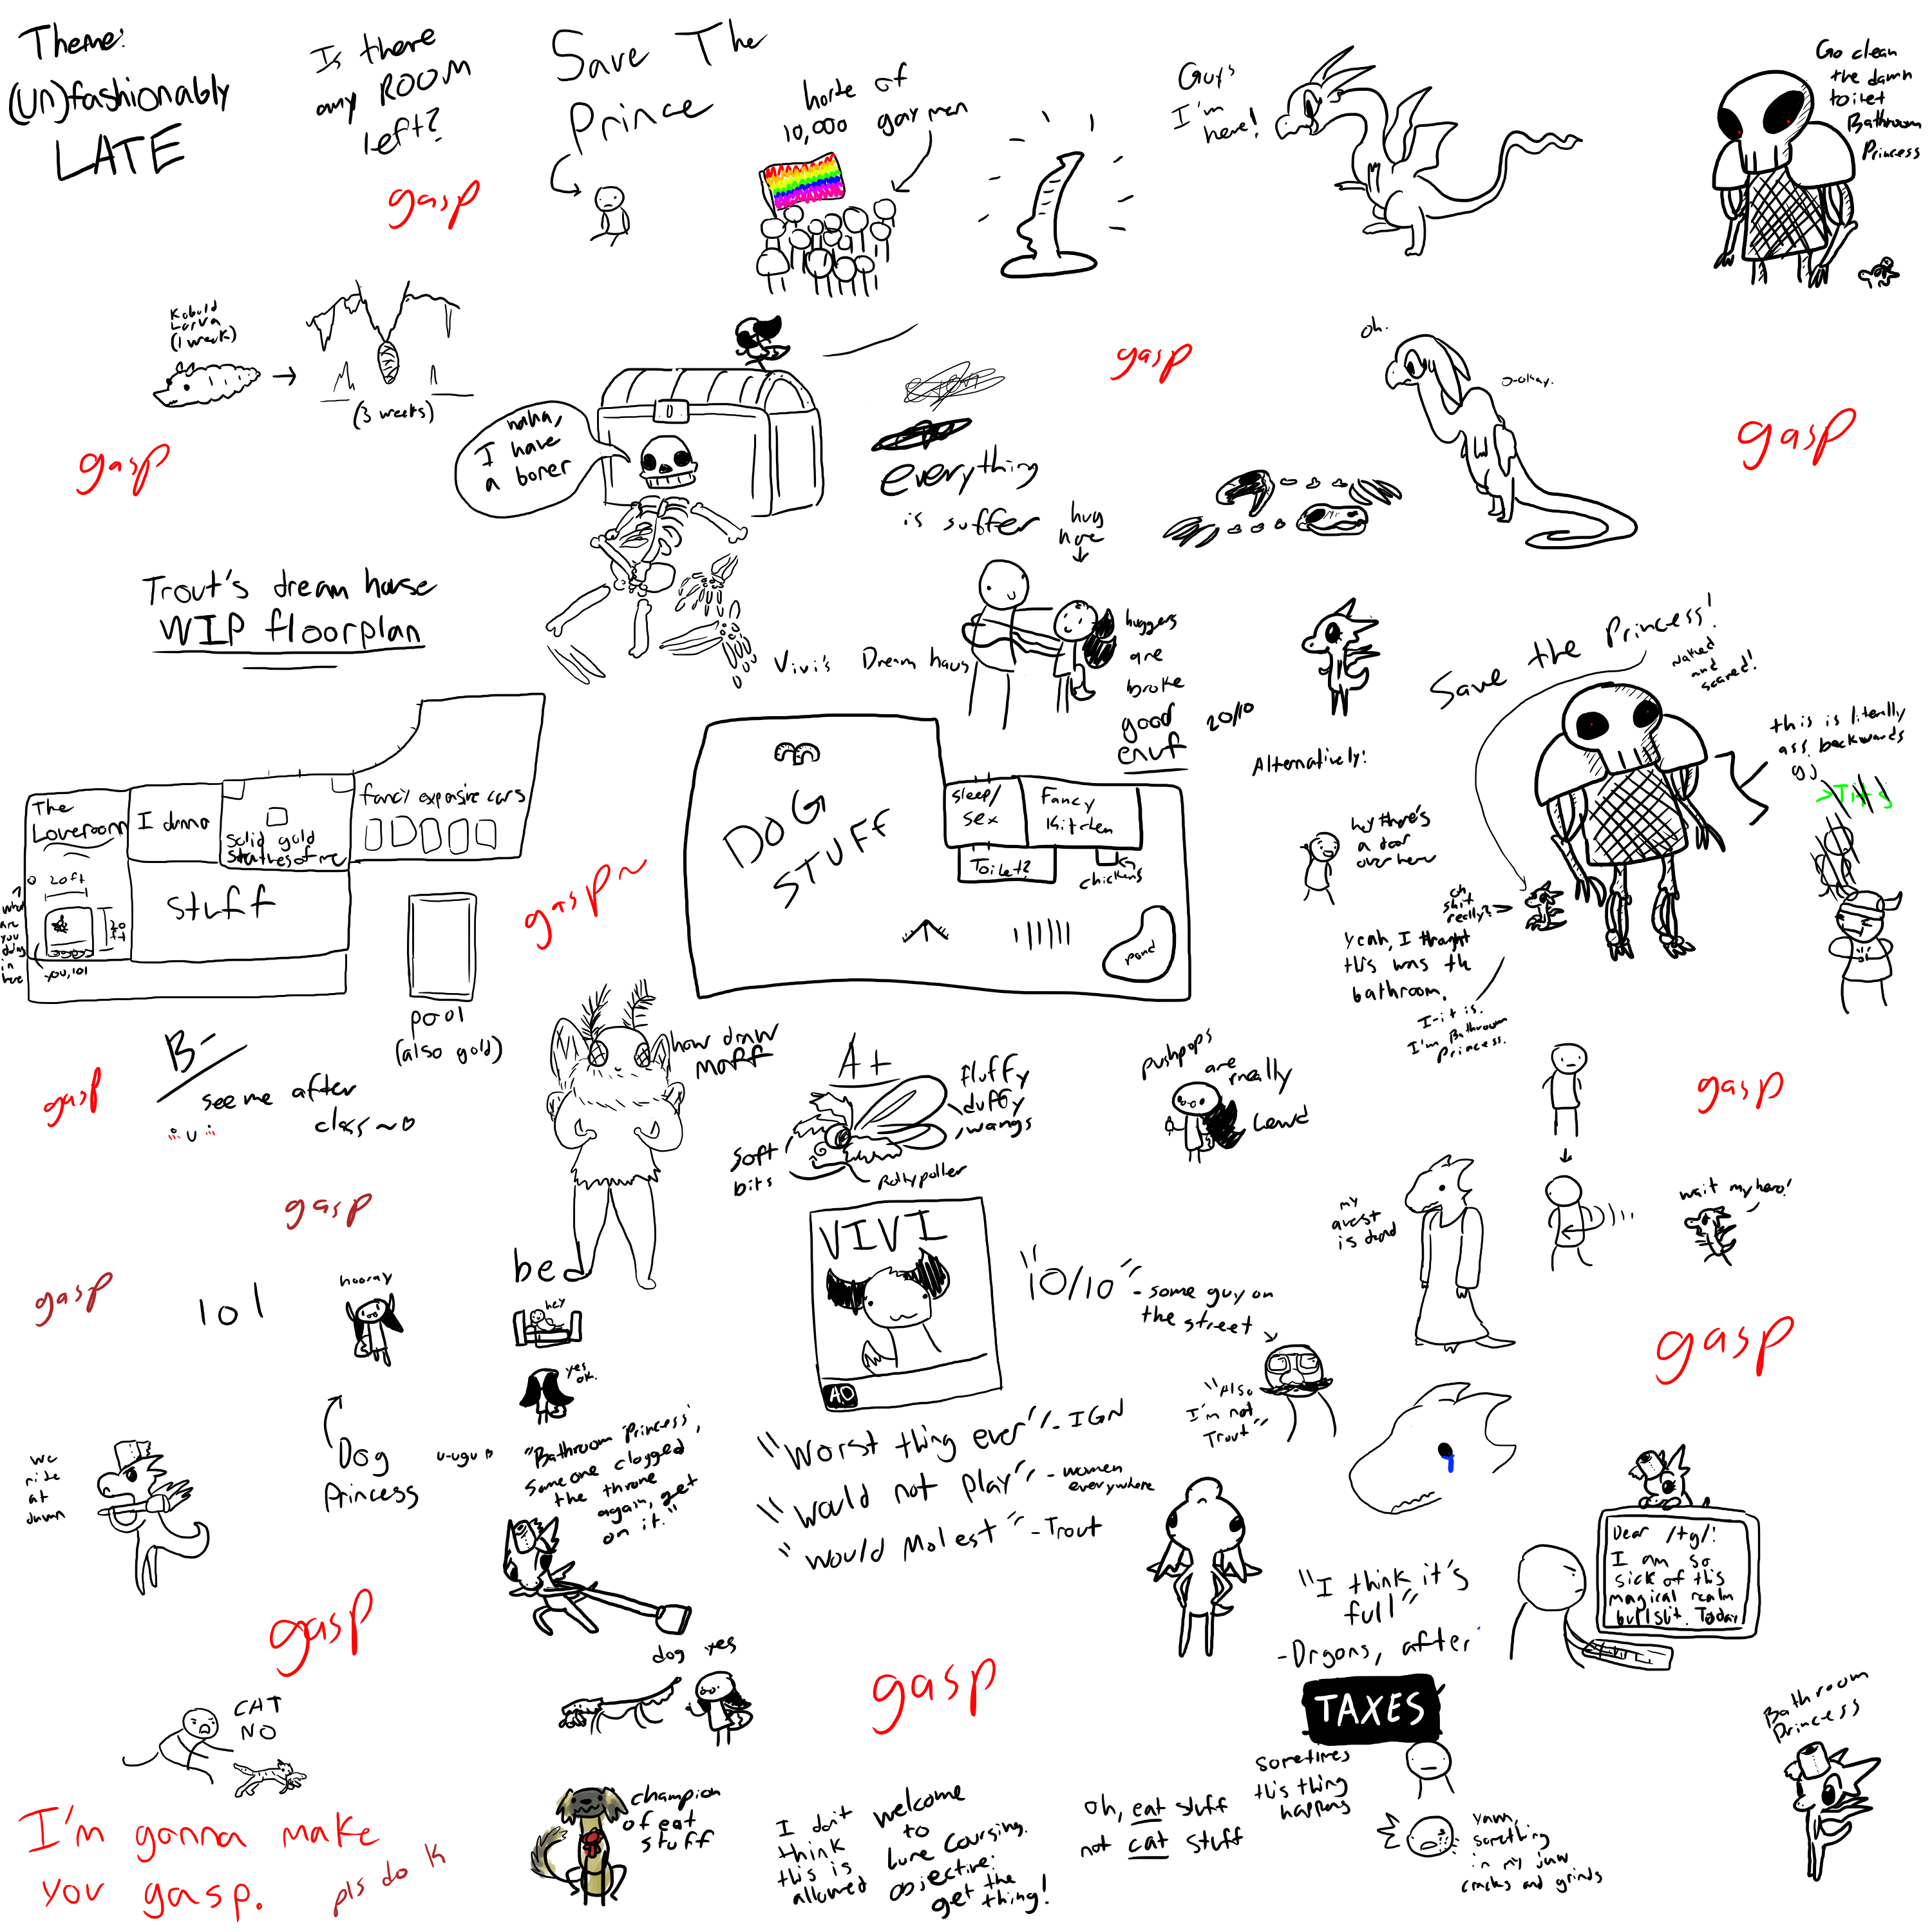 Theme:
(un)fashionably
LATE
Is there
any ROOM
left?
Save The
Prince
horde of
10,000 gay men
Guys
I'm
here!
Go clean
the damn
toilet
Bathroom
Princess
gasp
Kobold
Larva
(1 week)
(3 weeks)
gasp
haha,
I have
a boner
everything
is suffer
gasp
oh.
o-okay.
gasp
hug
here
huggers
are
broke
good
enuf
20/10
Trout's dream house
WIP floorplan
The
Loveroom
I dunno
solid gold
statues of me
fancy expensive cars
20ft
stuff
what
are
you
doing
in
here
you, lol
pool
(also gold)
gasp~
Vivi's Dream haus
DOG
STUFF
Sleep/
sex
Fancy
Kitchen
Toilet?
chickens
pond
Save the Princess!
Naked
and
scared!
this is literally
ass backwards
gj
>Tits
Alternatively:
hey there's
a door
over here
oh
shit
really?
yeah, I thought
this was the
bathroom.
I-it is.
I'm Bathroom
Princess.
gasp
B-
see me after
class~
how draw
moff
A+
fluffy
duffy
wangs
soft
bits
Rollypoller
pushpops
are
really
Lewd
gasp
gasp
gasp
lol
hooray
Dog
Princess
u-ugu
bed
hey
yes
ok.
"Bathroom Princess,
someone clogged
the throne
again, get
on it."
VIVI
AO
"10/10"
- some guy on
the street
"Also
I'm not
Trout"
"Worst thing ever" - IGN
"Would not play" - women
everywhere
"would Molest" - Trout
my
quest
is dead
wait my hero!
gasp
we
ride
at
dawn
gasp
"I think it's
full"
- Drgons, after
Dear /tg/:
I am so
sick of this
magical realm
bullshit. Today
TAXES
dog yes
gasp
CAT
NO
I'm gonna make
you gasp.
pls do k
champion
of eat
stuff
I don't
think
this is
allowed
welcome
to
Lure Coursing.
objective:
get the
thing!
oh, eat stuff
not cat stuff
sometimes
this thing
happens
yawn,
something
in my jaw
cracks and grinds
Bathroom
Princess